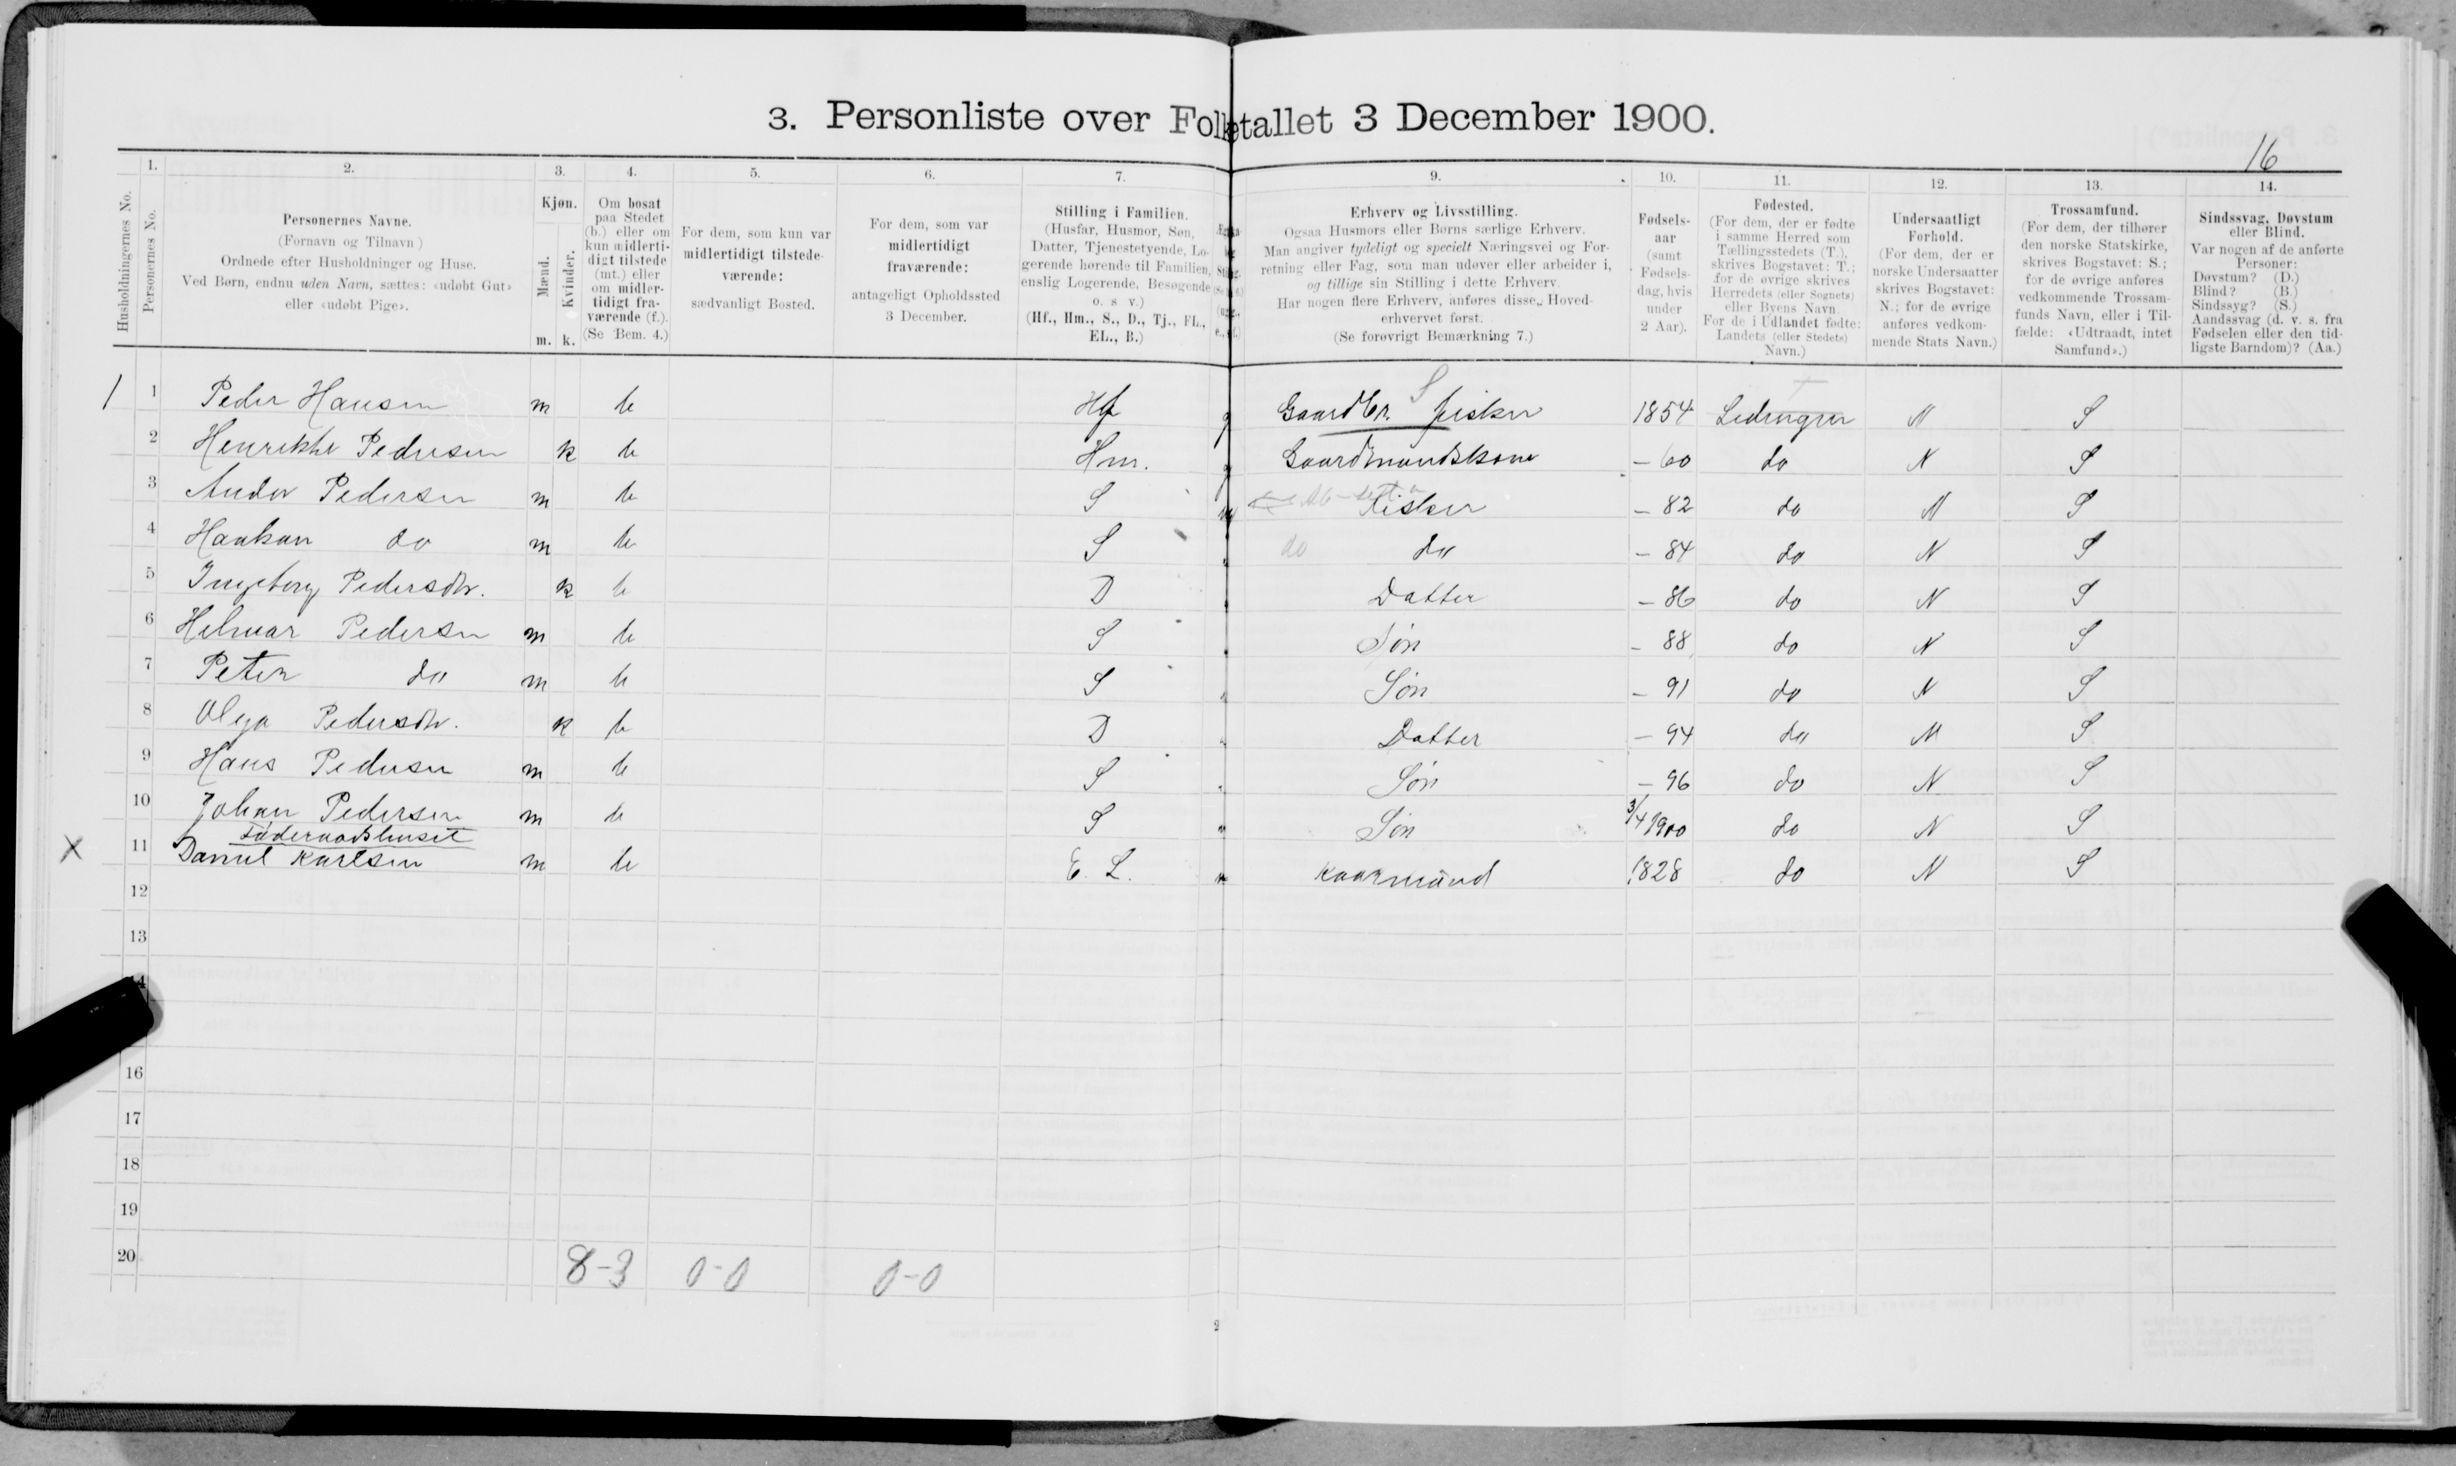 3. Personliste over Folketallet 3 December 1900.
16
1. 2. 3. 4. 5. 6. 7. 9. 10. 11. 12. 13. 14.
Husholdningernes No.
Personernes No.
Personernes Navne.
(Fornavn og Tilnavn)
Ordnede efter Husholdninger og Huse.
Ved Børn, endnu uden Navn, sættes: «udøbt Gut»
eller «udøbt Pige».
Kjøn.
Mænd.
Kvinder.
m. k.
Om bosat
paa Stedet
(b.) eller om
kun midlerti-
digt tilstede
(mt.) eller
om midler-
tidigt fra-
værende (f.).
(Se Bem. 4.)
For dem, som kun var
midlertidigt tilstede-
værende:
sædvanligt Bosted.
For dem, som var
midlertidigt
fraværende:
antageligt Opholdssted
3 December.
Stilling i Familien.
(Husfar, Husmor, Søn,
Datter, Tjenestetyende, Lo-
gerende hørende til Familien,
enslig Logerende, Besøgende
o. s v.)
(Hf., Hm., S., D., Tj., FL.,
EL., B.)
Erhverv og Livsstilling.
Ogsaa Husmors eller Børns særlige Erhverv.
Man angiver tydeligt og specielt Næringsvei og For-
retning eller Fag, som man udøver eller arbeider i,
og tillige sin Stilling i dette Erhverv.
Har nogen flere Erhverv, anføres disse, Hoved-
erhvervet først.
(Se forøvrigt Bemærkning 7.)
Fødsels-
aar
(samt
Fødsels-
dag, hvis
under
2 Aar).
Fødested.
(For dem, der er fødte
i samme Herred som
Tællingsstedets (T.),
skrives Bogstavet: T.;
for de øvrige skrives
Herredets (eller Sognets)
eller Byens Navn
For de i Udlandet fødte:
Landets (eller Stedets)
Navn.)
Undersaatligt
Forhold.
(For dem, der er
norske Undersaatter
skrives Bogstavet:
N.; for de øvrige
anføres vedkom-
mende Stats Navn.)
Trossamfund.
(For dem, der tilhører
den norske Statskirke,
skrives Bogstavet: S.;
for de øvrige anføres
vedkommende Trossam-
funds Navn, eller i Til-
fælde: «Udtraadt, intet
Samfund».)
Sindssvag, Døvstum
eller Blind.
Var nogen af de anførte
Personer:
Døvstum? (D.)
Blind? (B.)
Sindssyg? (S.)
Aandssvag (d. v. s. fra
Fødselen eller den tid-
ligste Barndom)? (Aa.)
1 1 Peder Hansen m b Hf g Gaardbr. S fisker 1854 T N S
2 Henrikke Pedersen k b Hm. g Gaardmandskone – 60 do N S
3 Andor Pedersen m b S Fisker – 82 do N S
4 Haakon do m b S do do – 84 do N S
5 Ingeborg Pedersdtr. k b D Datter – 86 do N S
6 Helmar Pedersen m b S Søn – 88 do N S
7 Peter do m b S Søn – 91 do N S
8 Olga Pedersdtr. k b D Datter – 94 do N S
9 Hans Pedersen m b S Søn – 96 do N S
10 Johan Pedersen m b S Søn 3/4 1900 do N S
Føderaadshuset
X 11 Daniel Karlsen m b E. L. Kaarmand 1828 do N S
12
13
14
16
17
18
19
20
8-3 0-0 0-0
2